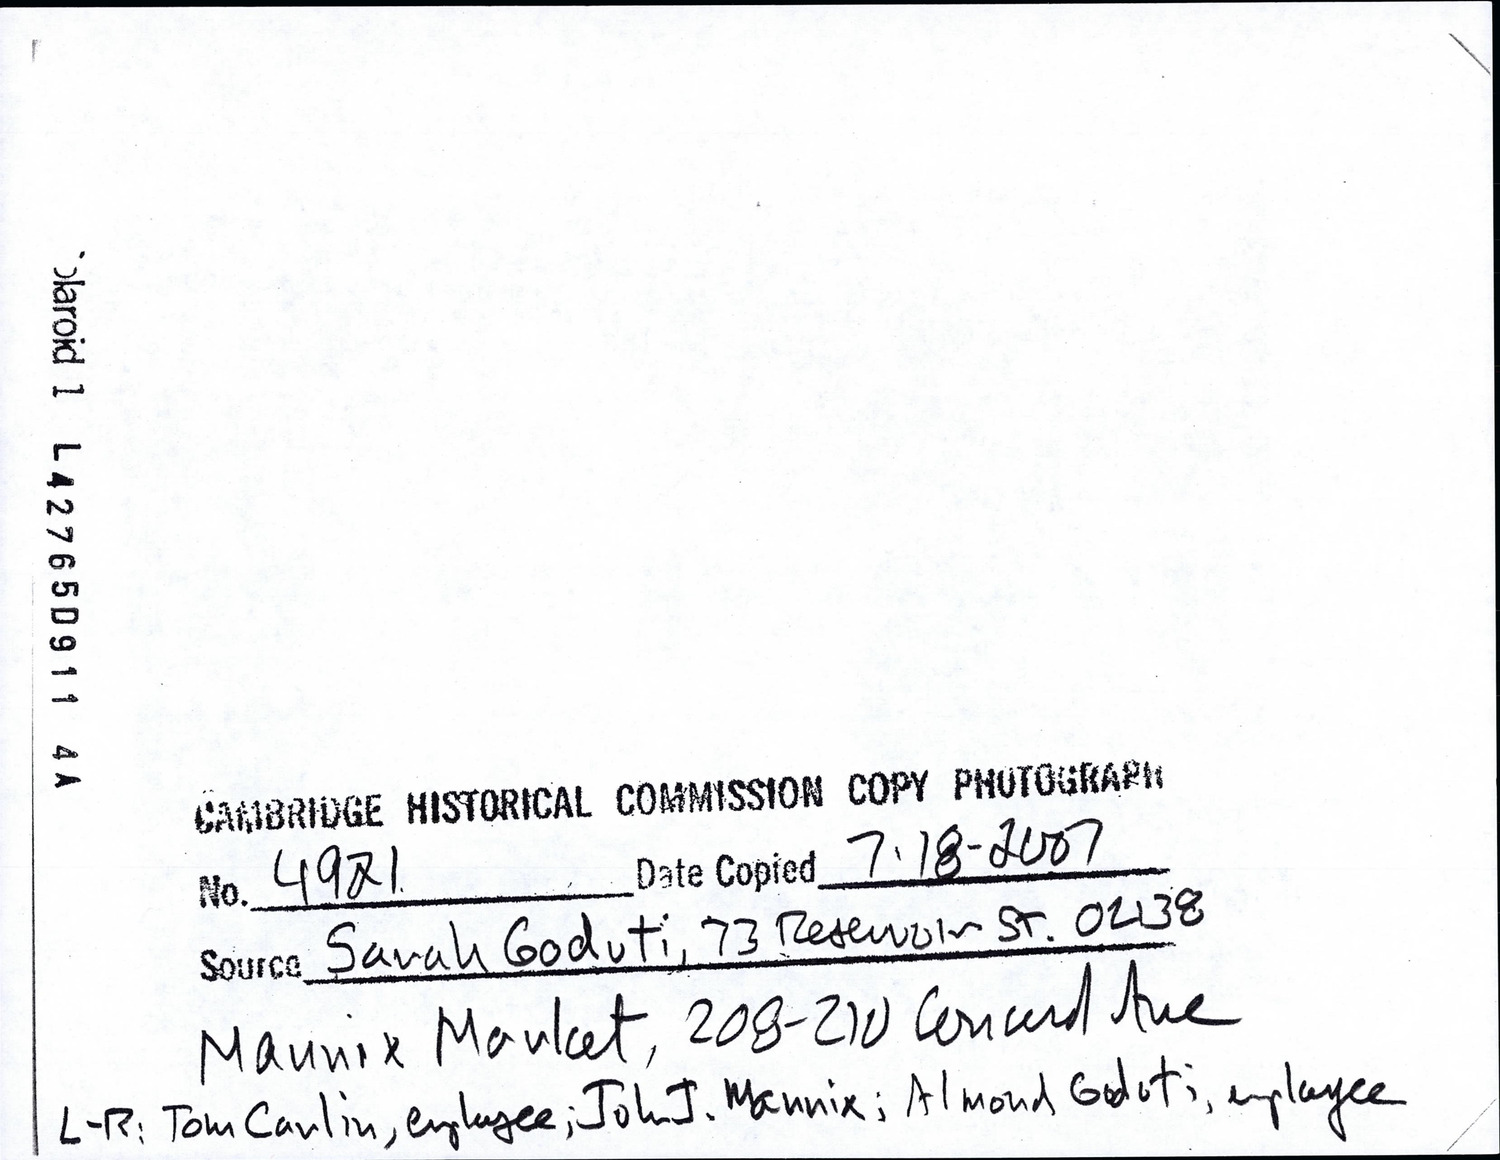 olaroid 1 L42765D911 4A
CAMBRIDGE HISTORICAL COMMISSION COPY PHOTOGRAPH
No. 4981 Date Copied 7-18-2007
Source Sarah Goduti, 73 Reservoir St. 02138
Mannix Market, 208-210 Concord Ave
L-R: Tom Carlin, employee; John J. Mannix; Almond Goduti, employee